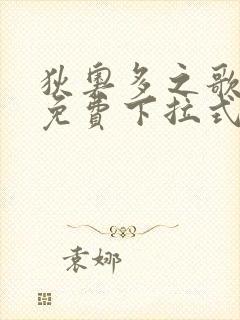 狄奥多之歌
免費下拉式
袁娜